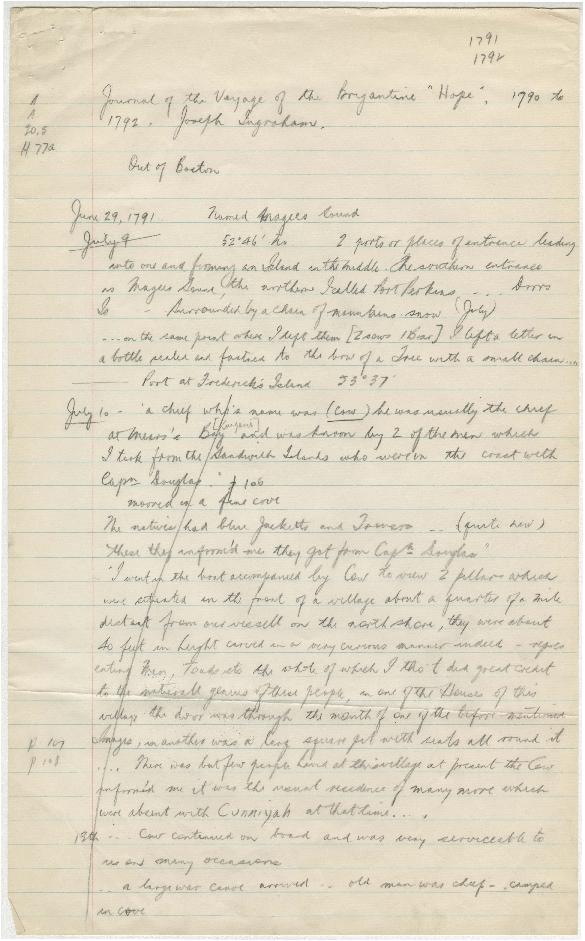 1791
1792
Journal of the Voyage of the Brigantine "Hope", 1790 to
1792. Joseph Ingraham.
A
A
20.5
H77a
Out of Boston
June 29, 1791 Named Magees Sound
July 9 52°46' No 2 ports or places of entrance leading
into one and forming an Island in the middle. The southern entrance
as Magees Sound, the northern I called Port Perkins ... Doors
Is - Surrounded by a chain of mountains. snow (July)
... on the same point where I left them [2 sows 1 Boar] I left a letter in
a bottle sealed and fastned to the bow of a Tree with a small chain...
Port at Frederick's Island 53°37'
July 10 - 'a chief who's name was (Cow) he was usually the chief
at Mears's Bay and was known by 2 of the men which
I took from the Sandwich Islands who were on the coast with
Captn Douglas." p 106
moored in a fine cove
The natives had blue Jacketts and Trowsers .. (quite new)
"these they inform'd me they got from Captn Douglas"
"I went in the boat accompanied by Cow to view 2 pillars which
were situated in the front of a village about a quarter of a mile
distant from our vessell on the north shore, they were about
40 feet in height carved in a very curious manner indeed - repres
enting Men, Toads etc the whole of which I tho't did great credit
to the naturall genius of these people, in one of the Houses of this
village the door was through the mouth of one of the before mentioned
Images, in another was a large square pit with seats all round it
p 107
... There was but few people lived at this village at present the Cow
p 108
inform'd me it was the usual residence of many more which
were absent with Cunniyah at that time...
13th ... Cow continued on board and was very serviceable to
us on many occasions
.. a large war canoe arrived .. old man was chief - camped
in cove